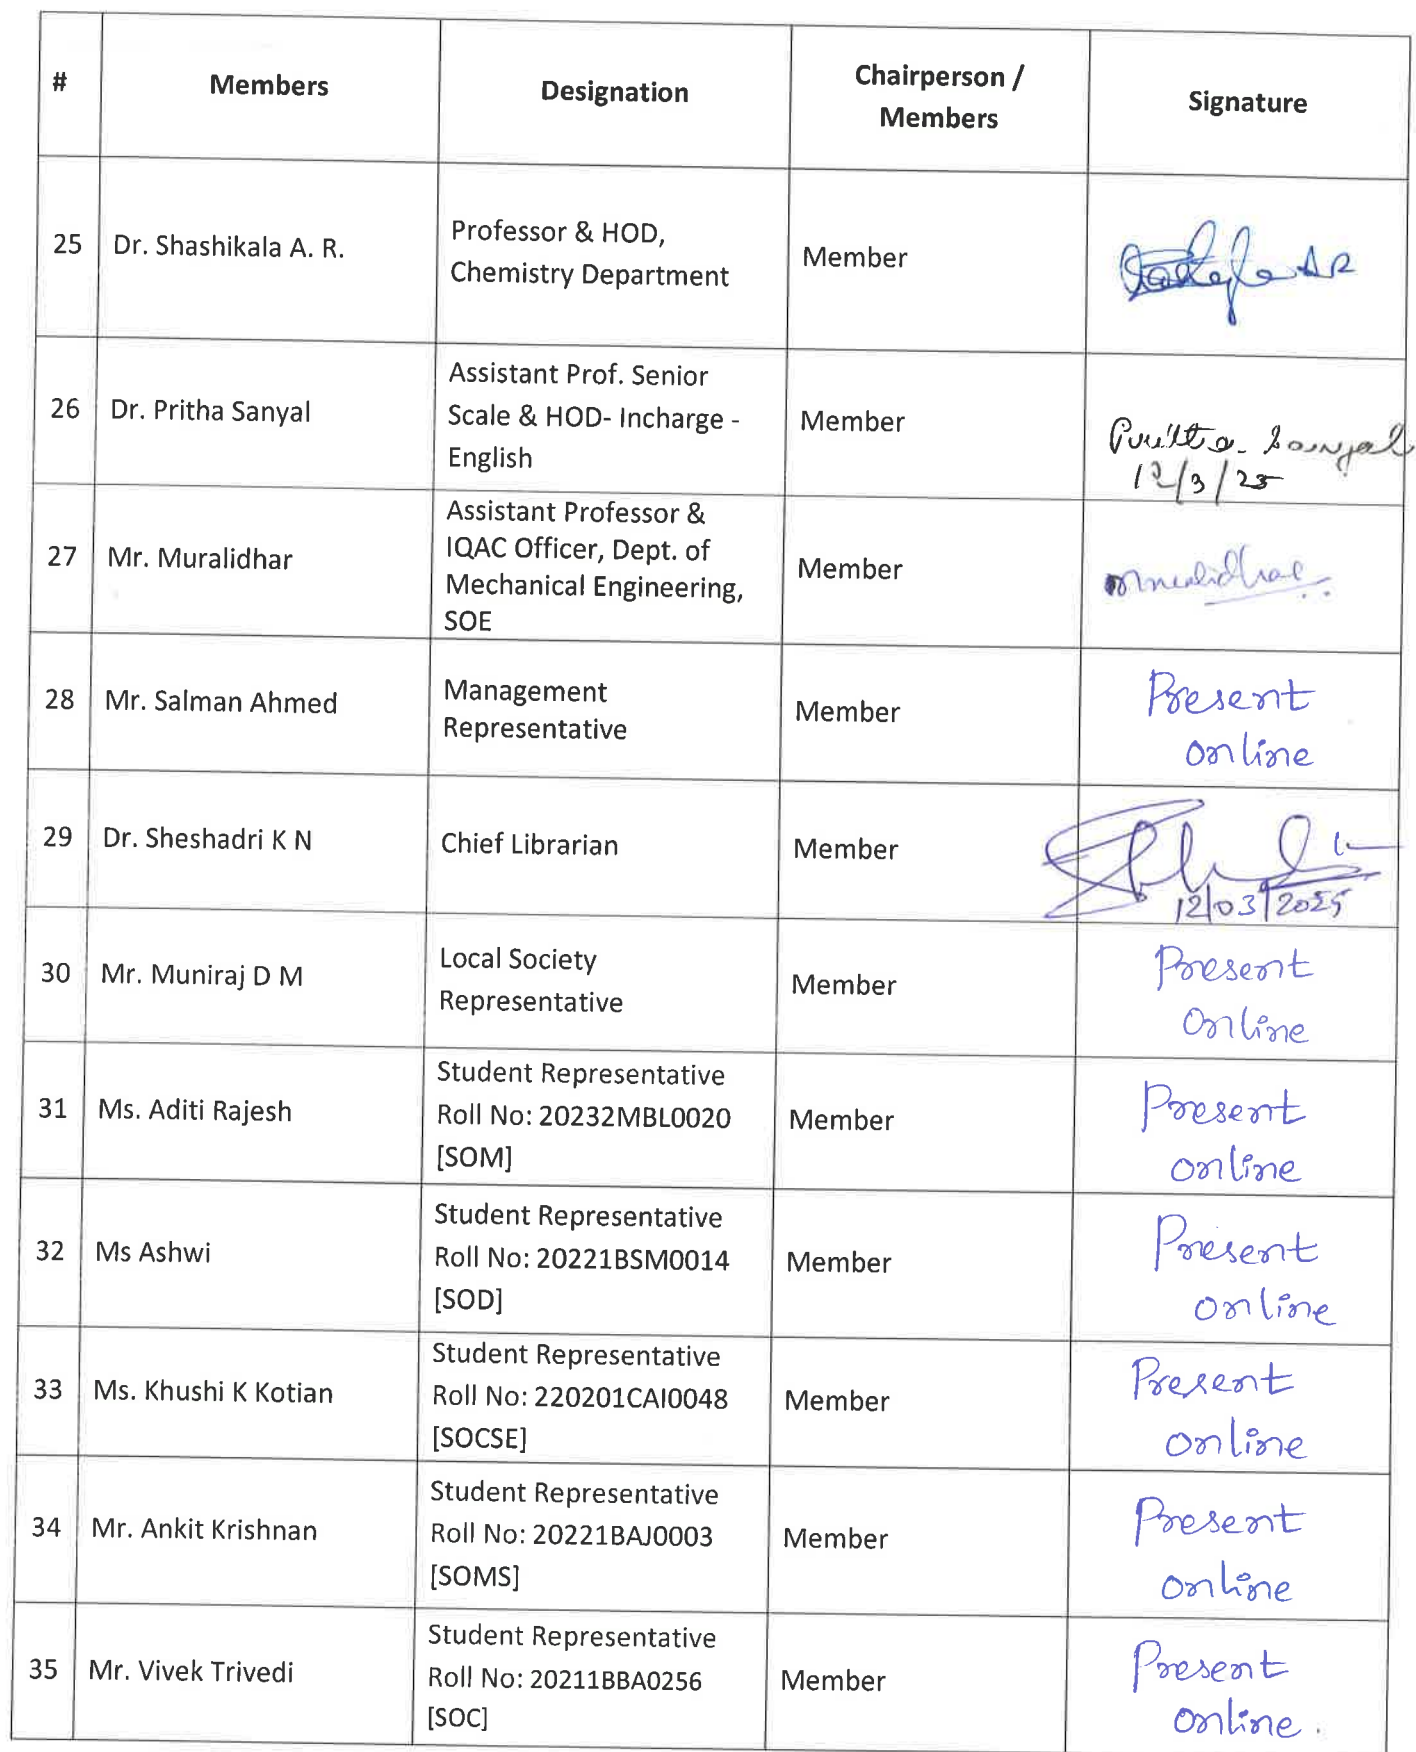 #
Members
Designation
Chairperson /
Members
Signature
25
Dr. Shashikala A. R.
Professor & HOD,
Chemistry Department
Member
26
Dr. Pritha Sanyal
Assistant Prof. Senior
Scale & HOD- Incharge -
English
Member
Pritha. Sanyal
12/3/25
27
Mr. Muralidhar
Assistant Professor &
IQAC Officer, Dept. of
Mechanical Engineering,
SOE
Member
Muralidhar
28
Mr. Salman Ahmed
Management
Representative
Member
Present
online
29
Dr. Sheshadri K N
Chief Librarian
Member
12/03/2025
30
Mr. Muniraj D M
Local Society
Representative
Member
Present
Online
31
Ms. Aditi Rajesh
Student Representative
Roll No: 20232MBL0020
[SOM]
Member
Present
online
32
Ms Ashwi
Student Representative
Roll No: 20221BSM0014
[SOD]
Member
Present
online
33
Ms. Khushi K Kotian
Student Representative
Roll No: 220201CAI0048
[SOCSE]
Member
Present
online
34
Mr. Ankit Krishnan
Student Representative
Roll No: 20221BAJ0003
[SOMS]
Member
Present
online
35
Mr. Vivek Trivedi
Student Representative
Roll No: 20211BBA0256
[SOC]
Member
Present
online.